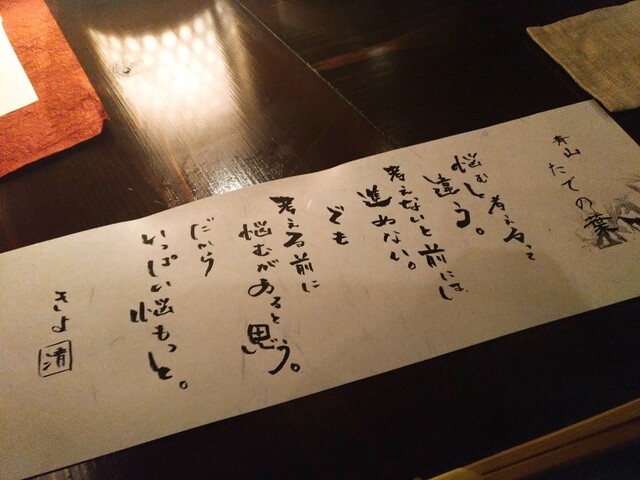 山
たての葉
悩むと考えるって
違う。
考えないと前には
進めない。
でも
考える前に
悩むがあると思う。
だから
いっぱい悩もっと。
きよ 清